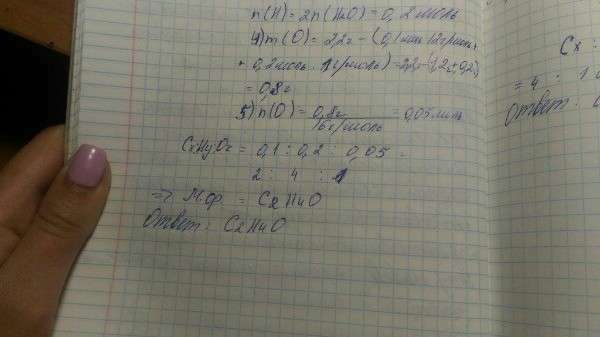 n(H) = 2n(H2O) = 0,2 моль
4) m(O) = 2,2г - (0,1 моль · 12г/моль +
+ 0,2 моль · 1г/моль) = 2,2 - (1,2 + 0,2)
= 0,8г
5) n(O) = 0,8г / 16г/моль = 0,05 моль
CxHyOz = 0,1 : 0,2 : 0,05
2 : 4 : 1
=> М.ф. = C2H4O
Ответ: C2H4O
Cx :
= 4 : 1
Ответ: